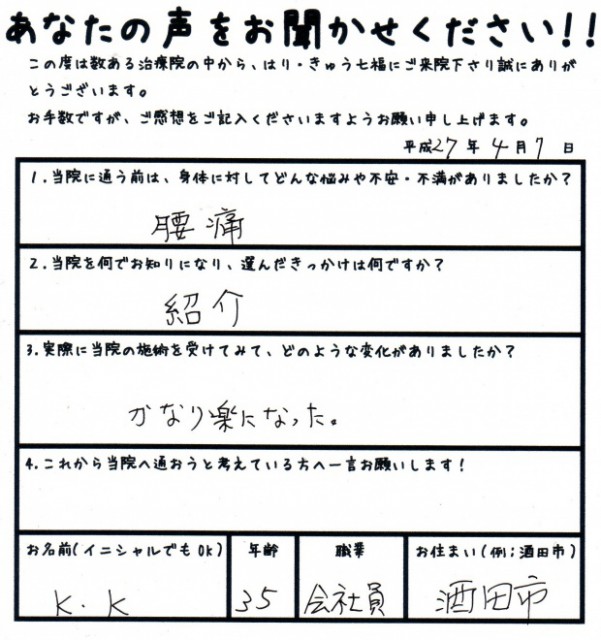 あなたの声をお聞かせください!!
この度は数ある治療院の中から、はり・きゅう七福にご来院下さり誠にありが
とうございます。
お手数ですが、ご感想をご記入くださいますようお願い申し上げます。
平成27年4月7日
1.当院に通う前は、身体に対してどんな悩みや不安・不満がありましたか?
腰痛
2.当院を何でお知りになり、選んだきっかけは何ですか?
紹介
3.実際に当院の施術を受けてみて、どのような変化がありましたか?
かなり楽になった。
4.これから当院へ通おうと考えている方へ一言お願いします!
お名前(イニシャルでもOK) 年齢 職業 お住まい(例;酒田市)
K.K 35 会社員 酒田市